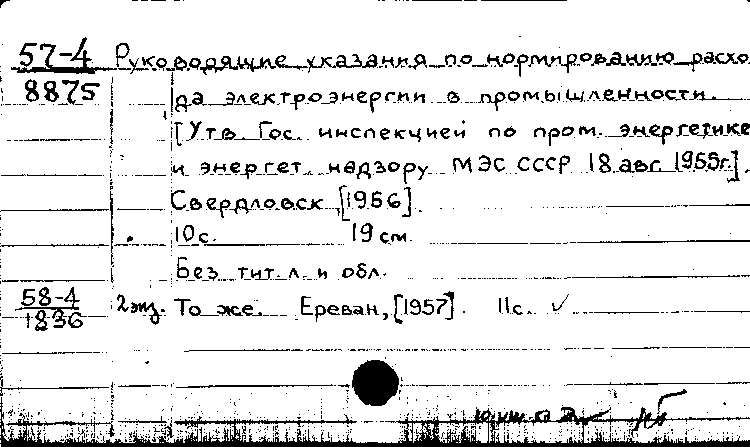 57-4 Руководящие указания по нормированию расхо
8875 да электроэнергии в промышленности.
[Утв. Гос. инспекцией по пром. энергетике
и энергет. надзору МЭС СССР 18 авг. 1955г.].
Свердловск, [1956].
10с. 19 см.
Без тит. л. и обл.
58-4 2 экз. То же. Ереван, [1957]. 11с. ✓
1836